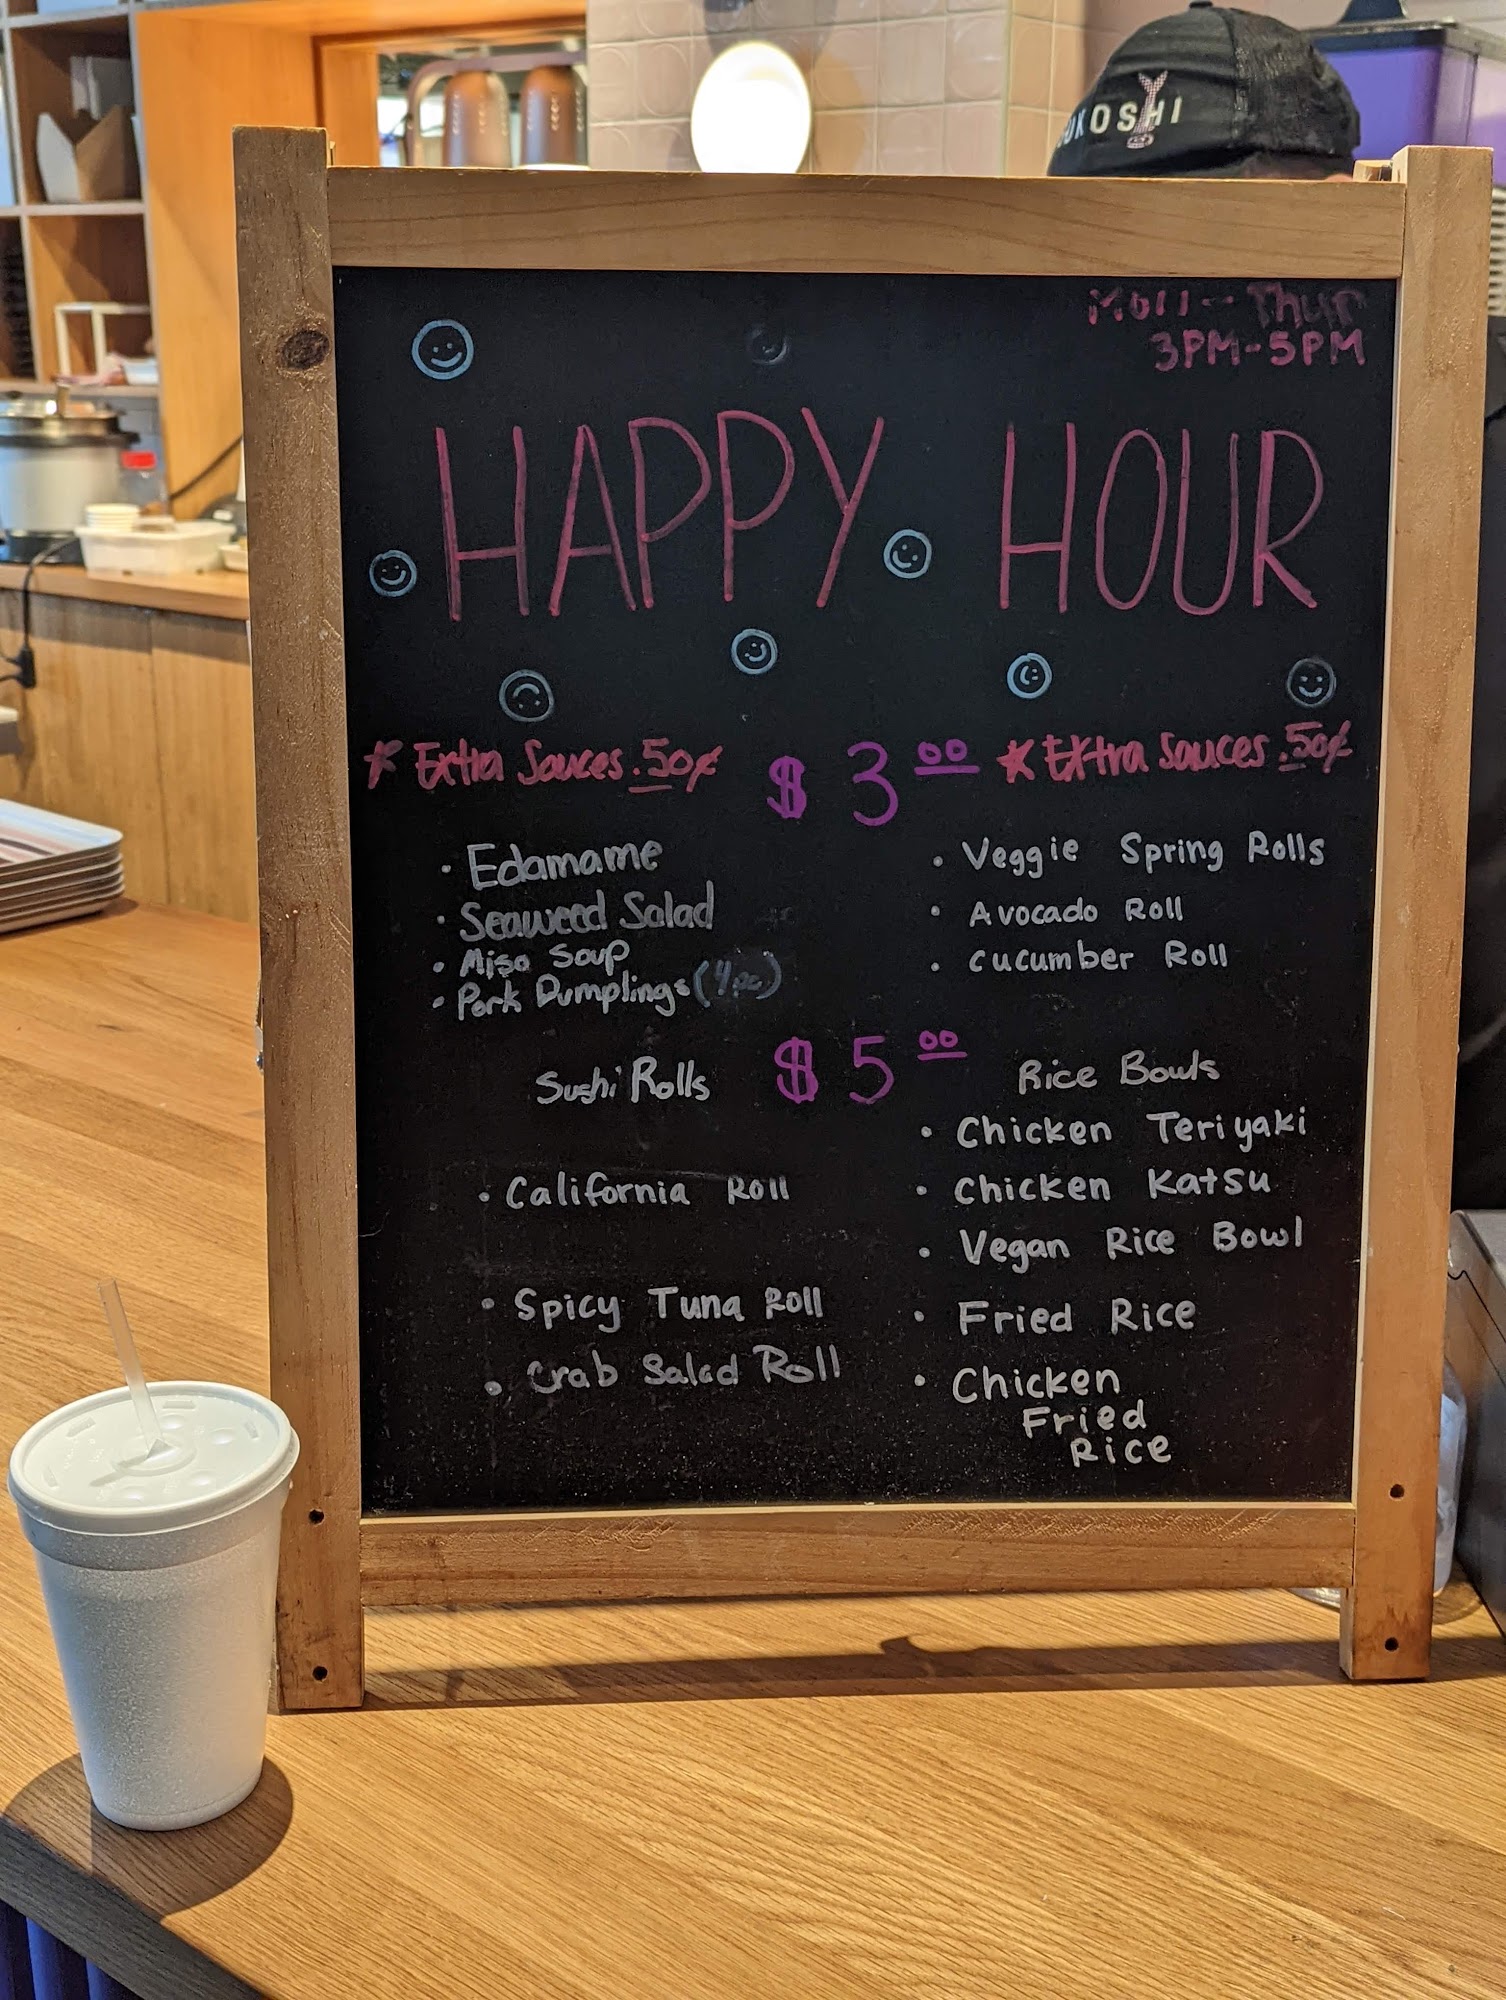 OKOSHI
Mon-Thur
3PM-5PM
HAPPY HOUR
* Extra Sauces .50¢
$3.00
* Extra Sauces .50¢
• Edamame
• Seaweed Salad
• Miso Soup
• Pork Dumplings (4pc)
• Veggie Spring Rolls
• Avocado Roll
• Cucumber Roll
$5.00
Sushi Rolls
• California Roll
• Spicy Tuna Roll
• Crab Salad Roll
Rice Bowls
• Chicken Teriyaki
• Chicken Katsu
• Vegan Rice Bowl
• Fried Rice
• Chicken
Fried
Rice